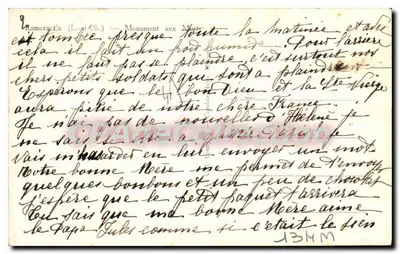 2
Romorantin (L.-et-Ch.) — Monument aux Morts
est tombée presque toute la matinée et avec
cela il fait un froid humide. Pour l'arrière
il ne faut pas se plaindre c'est surtout nos
chers petits soldats que sont a plaindre
Espérons que le Bon Dieu et la Ste Vierge
aura pitié de notre chère France
Je n'ai pas de nouvelles d'Hélène je
ne sais
vais lui envoyer un mot
Notre bonne Mère me permet de t'envoyer
quelques bonbons et un peu de chocolat
j'espère que le petit paquet t'arrivera
Tu sais que ma bonne Mère aime
le Papa Jules comme si c'était le sien
134M